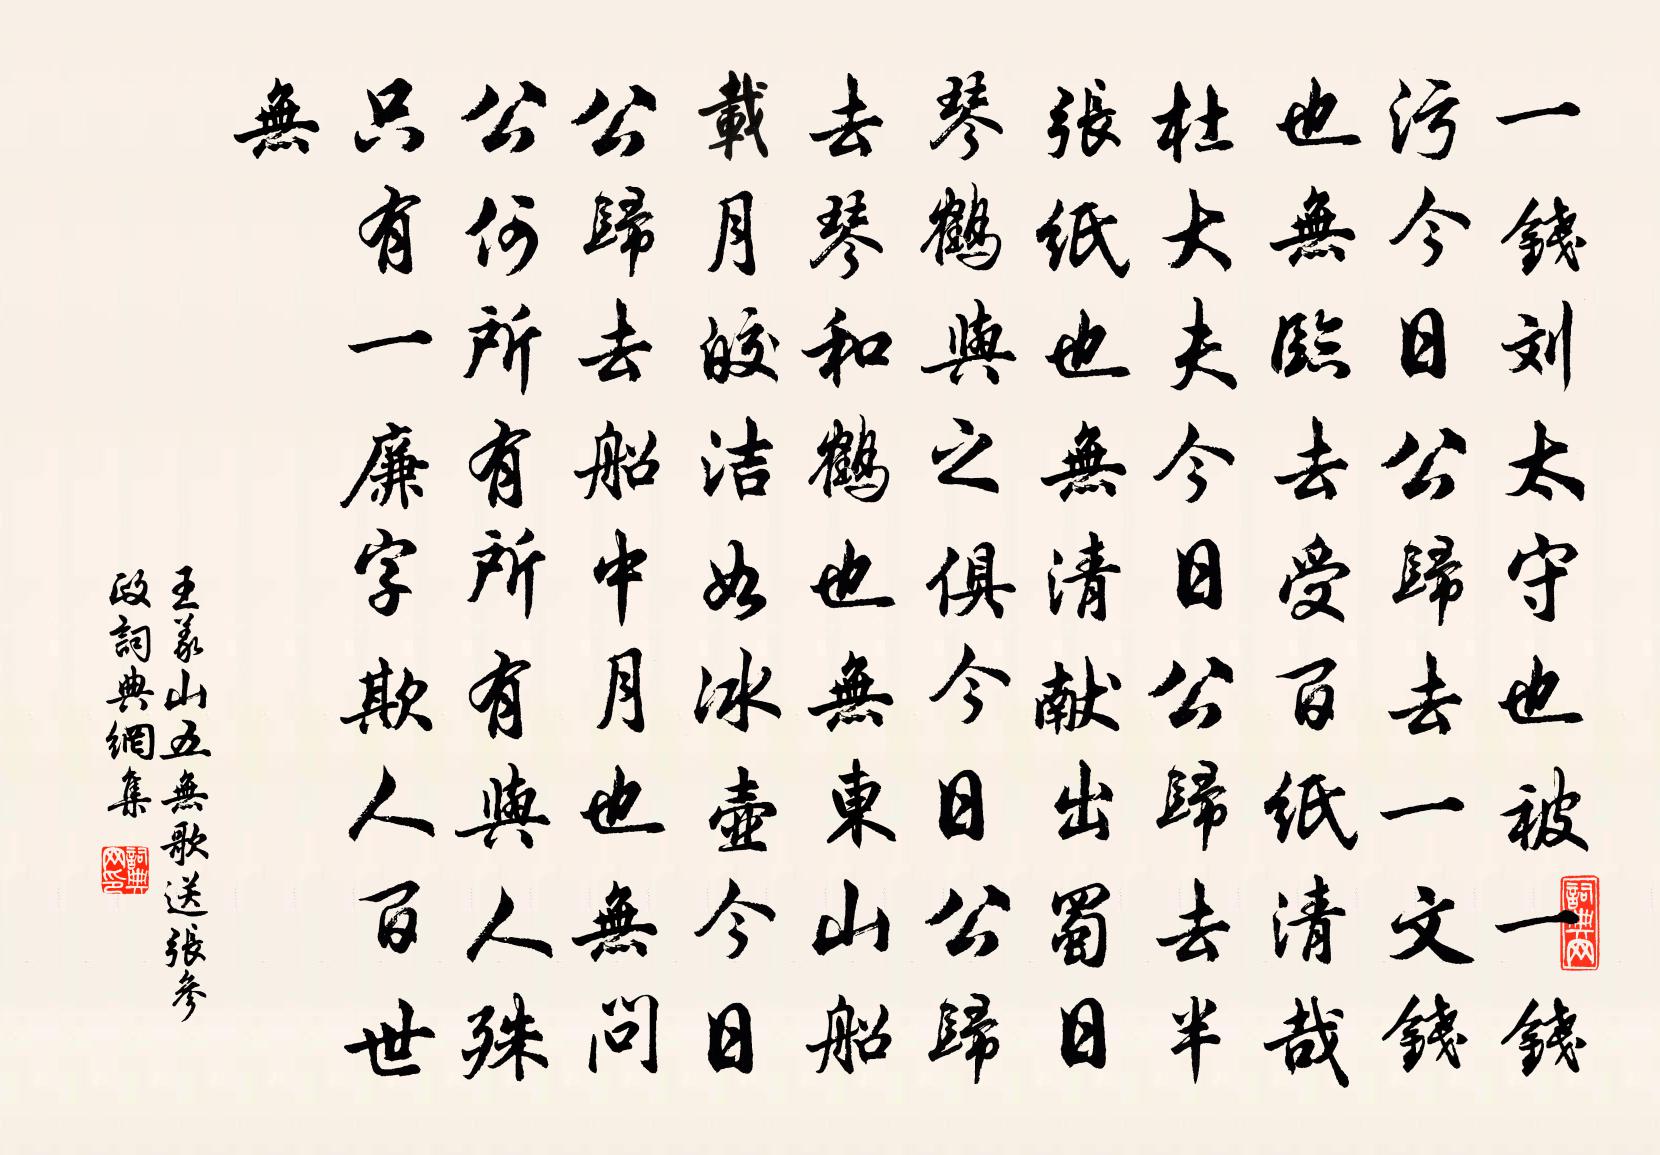 一錢刘太守也被一錢
污今日公歸去一文錢
也無臨去受百紙清哉
杜大夫今日公歸去半
張紙也無清献出蜀日
琴鶴與之俱今日公歸
去琴和鶴也無東山船
載月皎洁如冰壺今日
公歸去船中月也無問
公何所有所有與人殊
只有一廉字欺人百世
無
王義山五無歌送張參
政詞典網集
詞典网
詞典网印